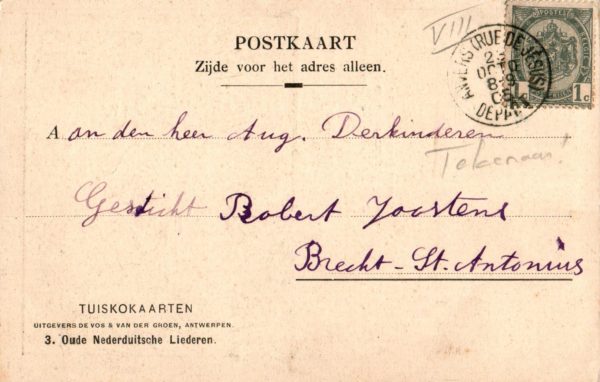 VIII
POSTKAART
Zijde voor het adres alleen.
ANVERS (RUE DE JÉSUS)
DEPART
1 1c
Aan den heer Aug. Derkinderen
Tekenaar!
Gesticht Robert Joostens
Brecht-St. Antonius
TUISKOKAARTEN
UITGEVERS DE VOS & VAN DER GROEN, ANTWERPEN.
3. Oude Nederduitsche Liederen.